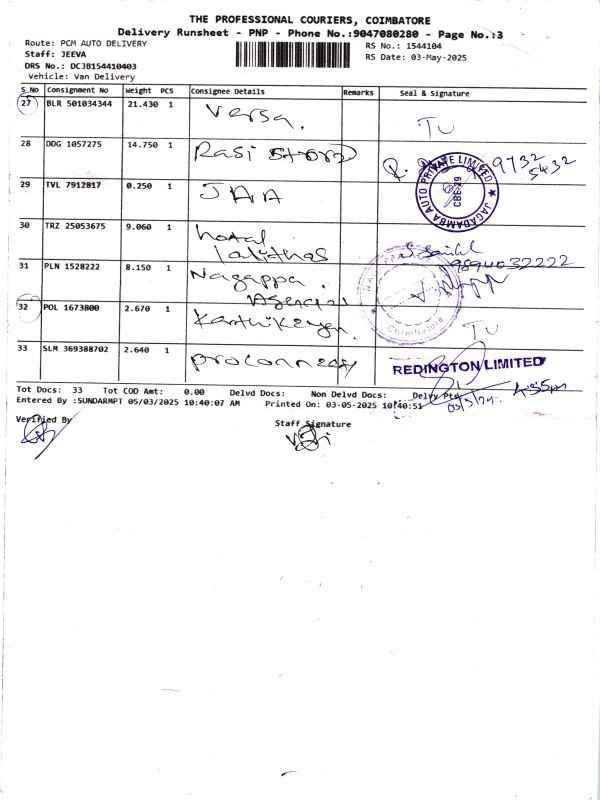 THE PROFESSIONAL COURIERS, COIMBATORE
Delivery Runsheet - PNP - Phone No.:9047080280 - Page No.:3
Route: PCM AUTO DELIVERY
RS No.: 1544104
Staff: JEEVA
RS Date: 03-May-2025
DRS No.: DCJB154410403
Vehicle: Van Delivery
S_No Consignment No Weight PCS Consignee Details Remarks Seal & Signature
27 BLR 501034344 21.430 1 Versa. TU
28 DDG 1057275 14.750 1 Rasi Stores 97325432
29 TVL 7912817 0.250 1 JAA
JAGADAMBA AUTO PRIVATE LIMITED ★ CBE-29
30 TRZ 25053675 9.060 1 hotal
Lalithas
9894032222
31 PLN 1528222 8.150 1 Nagappa.
Agencies
Coimbatore
32 POL 1673800 2.670 1 Karthikeyn. TU
33 SLM 369388702 2.640 1 proconnecy
REDINGTON LIMITED
Tot Docs: 33 Tot COD Amt: 0.00 Delvd Docs: Non Delvd Docs: Delvy Pts
4:35pm
Entered By :SUNDARMPT 05/03/2025 10:40:07 AM Printed On: 03-05-2025 10:40:51
Verified By
Staff Signature